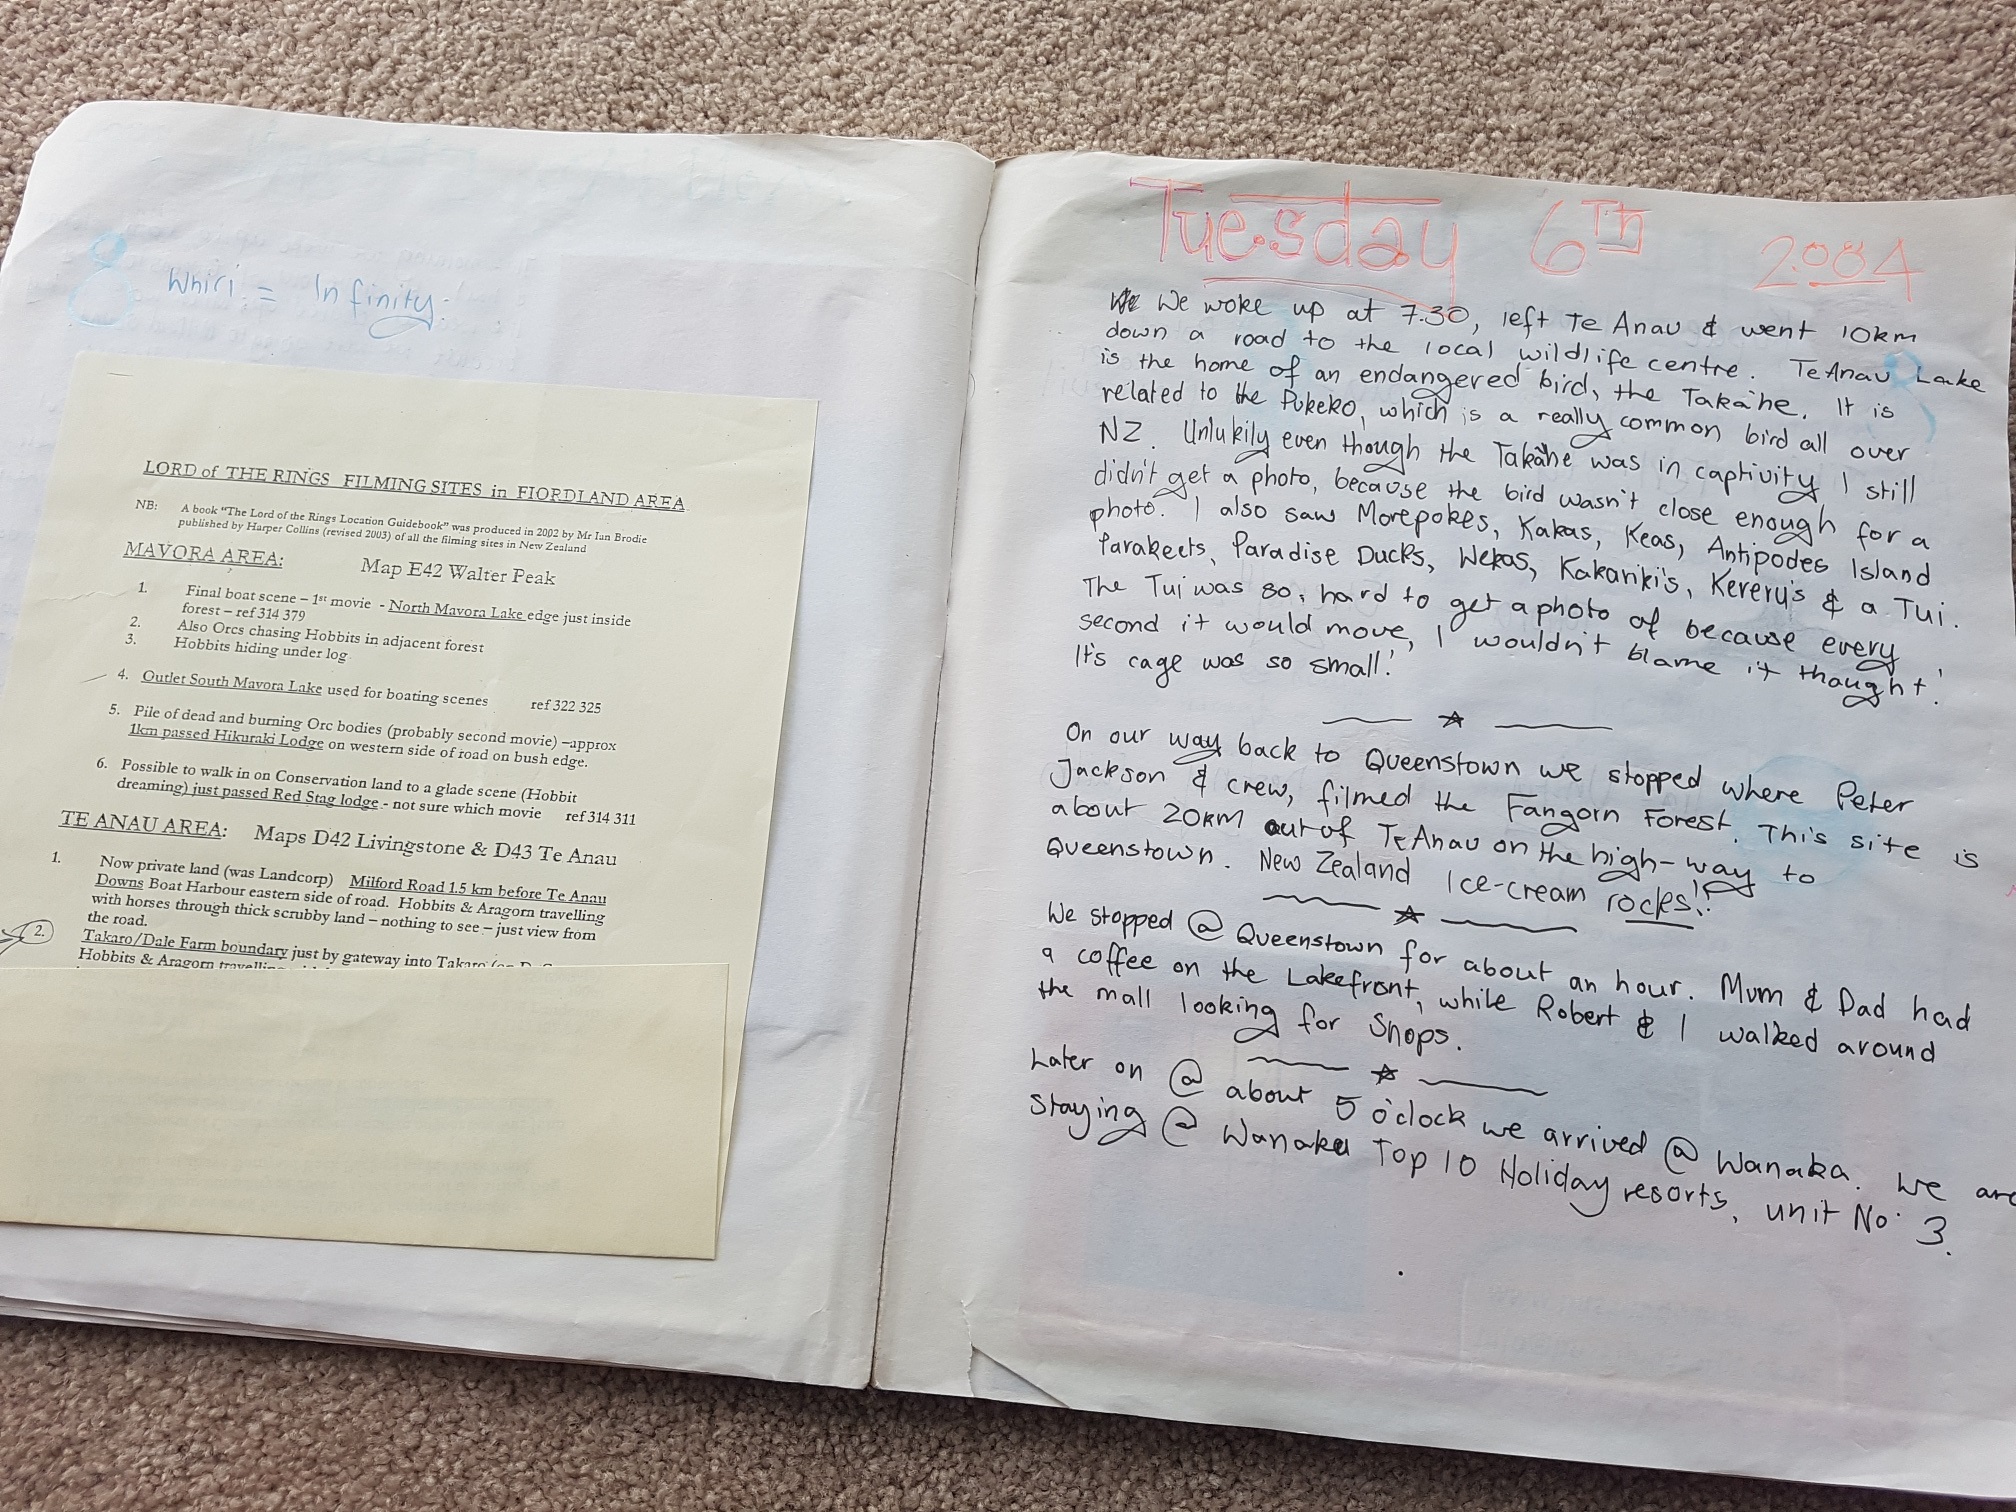 Whiri = Infinity.
LORD of THE RINGS FILMING SITES in FIORDLAND AREA
NB: A book "The Lord of the Rings Location Guidebook" was produced in 2002 by Mr Ian Brodie
published by Harper Collins (revised 2003) of all the filming sites in New Zealand
MAVORA AREA: Map E42 Walter Peak
1. Final boat scene – 1st movie - North Mavora Lake edge just inside
forest – ref 314 379
2. Also Orcs chasing Hobbits in adjacent forest
3. Hobbits hiding under log
4. Outlet South Mavora Lake used for boating scenes ref 322 325
5. Pile of dead and burning Orc bodies (probably second movie) –approx
1km passed Hikuraki Lodge on western side of road on bush edge.
6. Possible to walk in on Conservation land to a glade scene (Hobbit
dreaming) just passed Red Stag lodge - not sure which movie ref 314 311
TE ANAU AREA: Maps D42 Livingstone & D43 Te Anau
1. Now private land (was Landcorp) Milford Road 1.5 km before Te Anau
Downs Boat Harbour eastern side of road. Hobbits & Aragorn travelling
with horses through thick scrubby land – nothing to see – just view from
the road.
2. Takaro/Dale Farm boundary just by gateway into Takaro
Hobbits & Aragorn travelling
Tuesday 6Th 2004
We We woke up at 7.30, left Te Anau & went 10km
down a road to the local wildlife centre. Te Anau Lake
is the home of an endangered bird, the Takahe. It is
related to the Pukeko, which is a really common bird all over
NZ. Unlukily even though the Takahe was in captivity I still
didn't get a photo, because the bird wasn't close enough for a
photo. I also saw Morepokes, Kakas, Keas, Antipodes Island
Parakeets, Paradise Ducks, Wekas, Kakariki's, Kereru's & a Tui.
The Tui was so, hard to get a photo of because every
second it would move, I wouldn't blame it thought!
It's cage was so small!
On our way back to Queenstown we stopped where Peter
Jackson & crew, filmed the Fangorn Forest. This site is
about 20km out of Te Anau on the high-way to
Queenstown. New Zealand Ice-cream rocks!!
We stopped @ Queenstown for about an hour. Mum & Dad had
a coffee on the Lakefront, while Robert & I walked around
the mall looking for Shops.
Later on @ about 5 o'clock we arrived @ Wanaka. We are
staying @ Wanaka Top 10 Holiday resorts, unit No. 3.